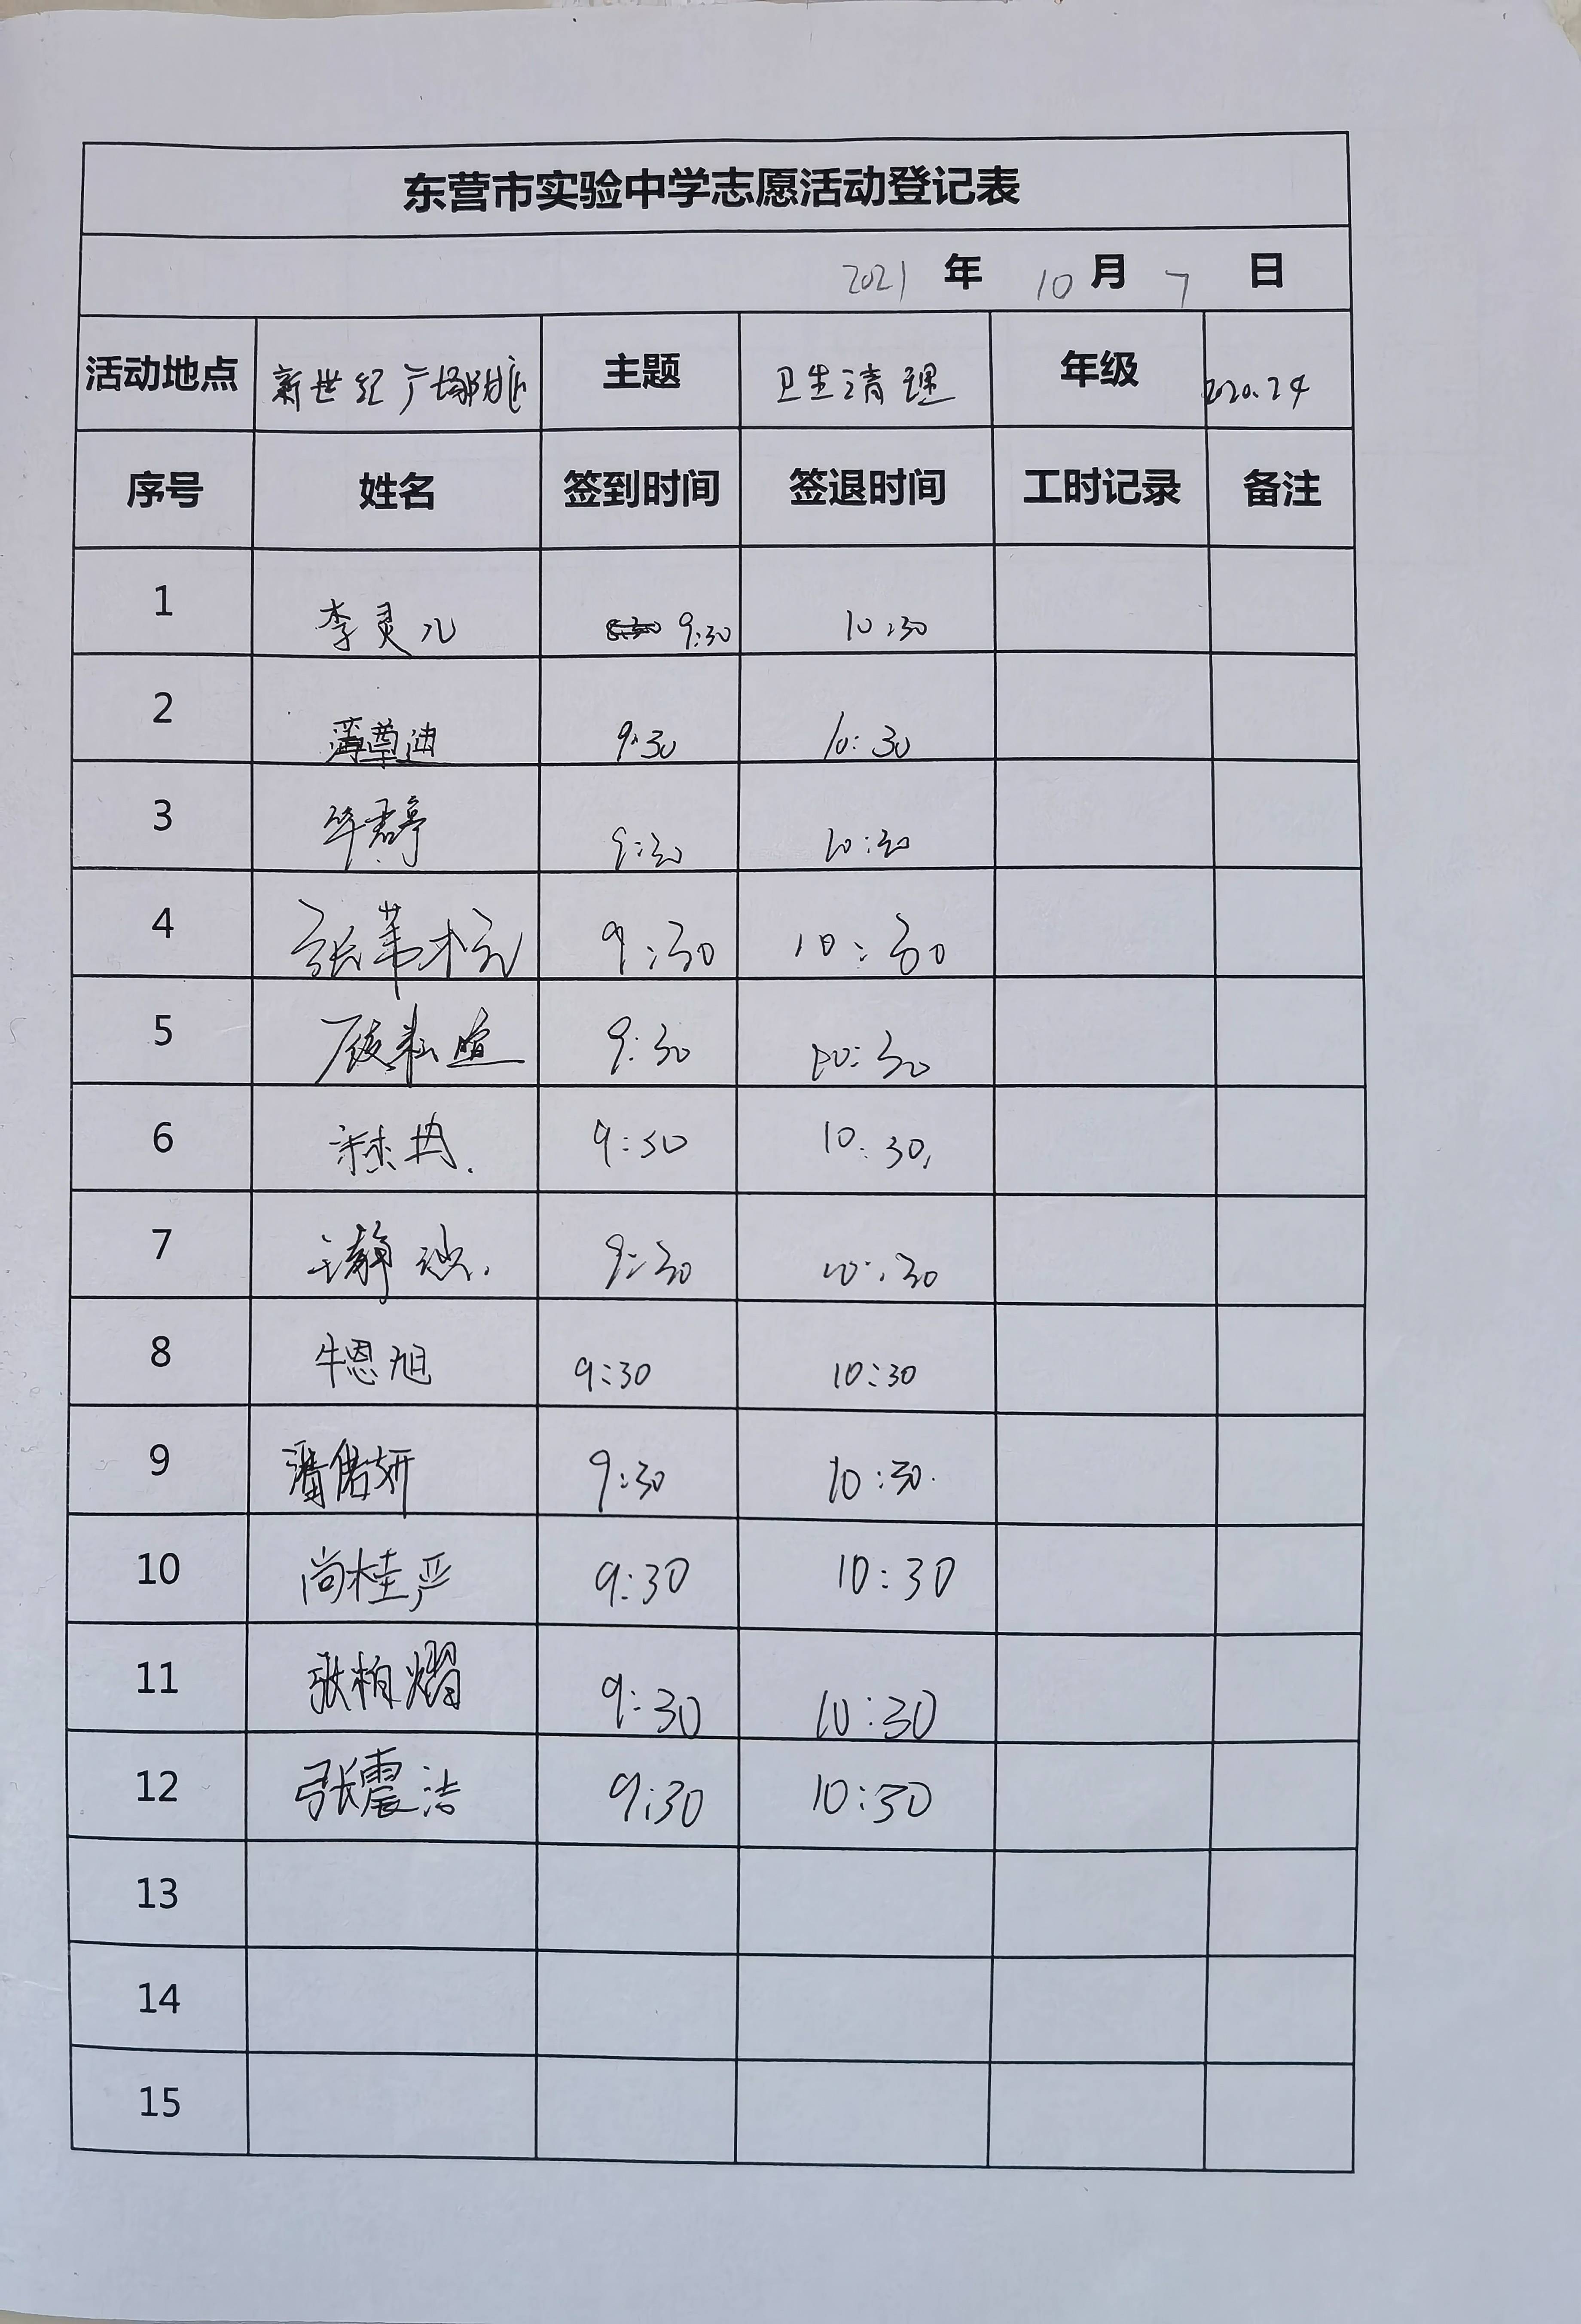 东营市实验中学志愿活动登记表
2021 年 10 月 7 日
活动地点 新世纪广场附近 主题 卫生清理 年级 2020.24
序号 姓名 签到时间 签退时间 工时记录 备注
1 李灵儿 9:30 10:30
2 9:30 10:30
3 9:30 10:30
4 9:30 10:30
5 9:30 10:30
6 9:30 10:30
7 9:30 10:30
8 牛恩旭 9:30 10:30
9 潘偌妍 9:30 10:30
10 尚桂严 9:30 10:30
11 张柏熠 9:30 10:30
12 张震洁 9:30 10:30
13
14
15